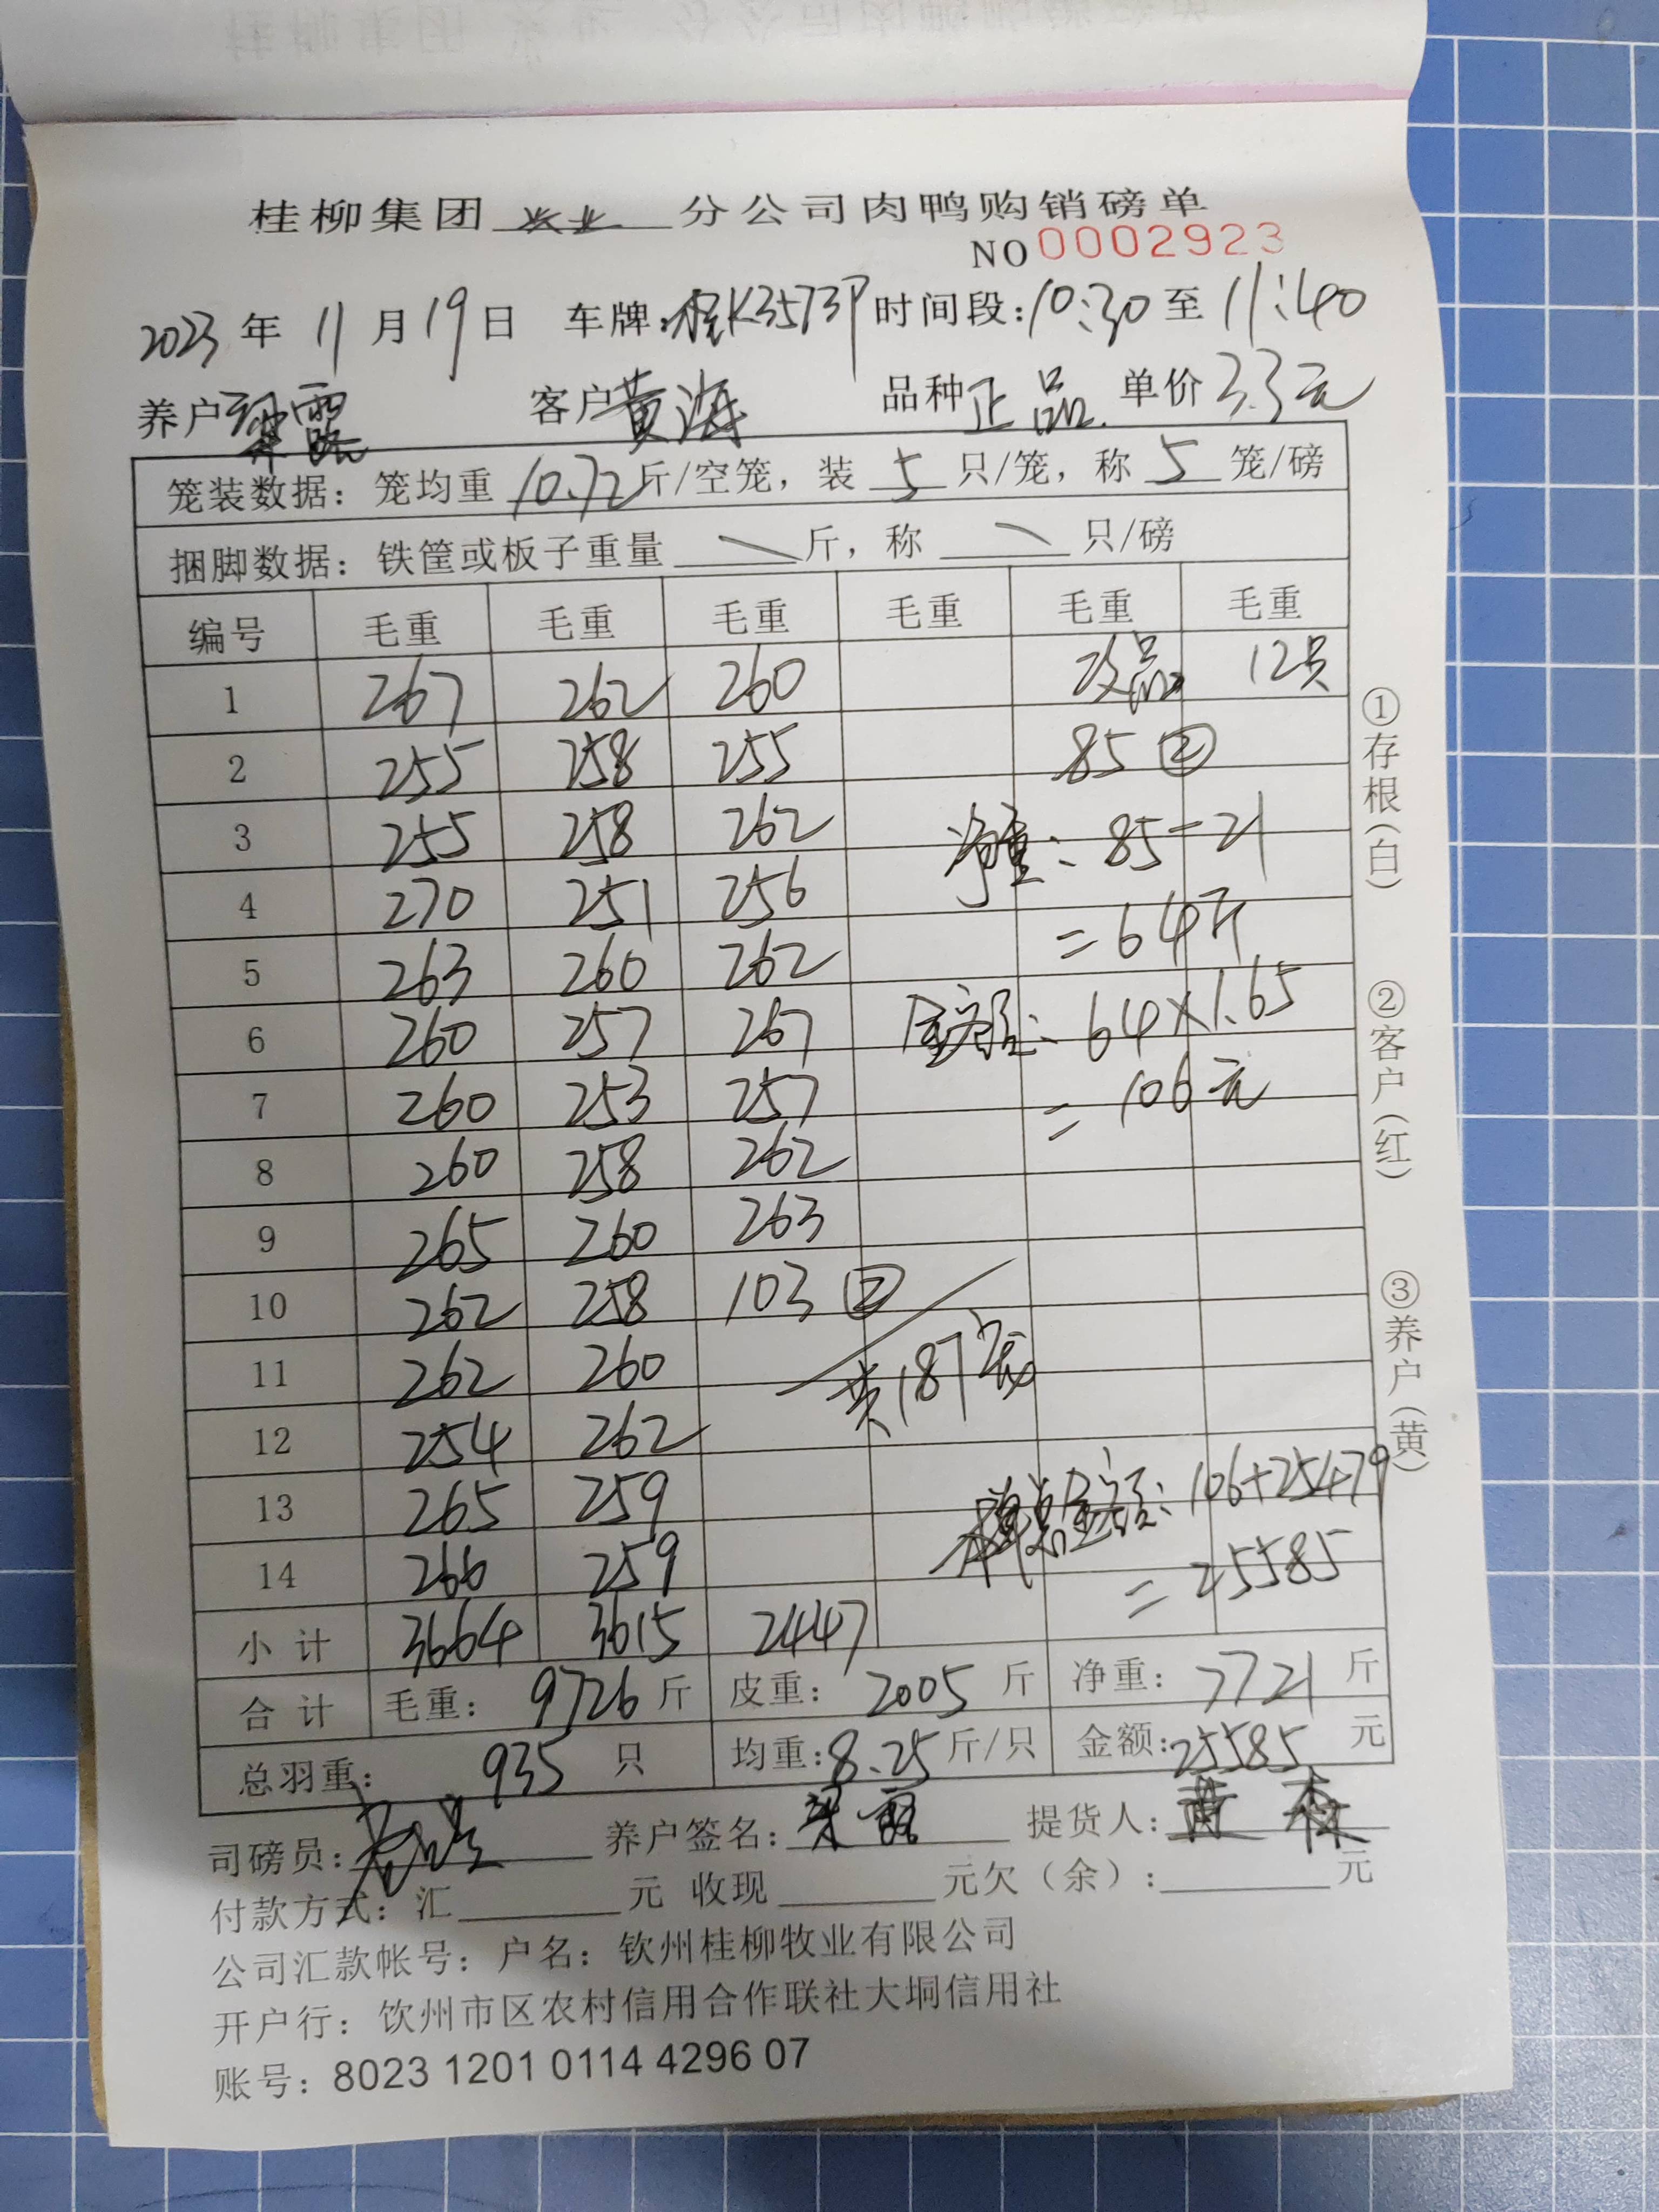 桂柳集团 兴业 分公司肉鸭购销磅单
NO 0002923
2023 年 11 月 19 日 车牌:桂K3573P 时间段:10:30 至 11:40
养户 客户 黄海 品种 正品 单价 3.3元
笼装数据: 笼均重 10.72 斤/空笼, 装 5 只/笼, 称 5 笼/磅
捆脚数据: 铁筐或板子重量 \ 斤, 称 \ 只/磅
编号 毛重 毛重 毛重 毛重 毛重 毛重
1 267 262 260 次品 12只
2 255 258 255 85 ②
3 255 258 262 净重: 85-21
4 270 251 256 =64斤
5 263 260 262
6 260 257 267 金额: 64×1.65
7 260 253 257 = 106元
8 260 258 262
9 265 260 263
10 262 258 103 ②
11 262 260 共187笼
12 254 262
13 265 259 总金额: 106+25479
14 266 259 = 25585
小计 3664 3615 2447
合计 毛重: 9726 斤 皮重: 2005 斤 净重: 7721 斤
总羽重: 935 只 均重: 8.25 斤/只 金额: 25585 元
司磅员: 养户签名: 提货人: 黄
付款方式: 汇 元 收现 元欠(余): 元
公司汇款帐号: 户名: 钦州桂柳牧业有限公司
开户行: 钦州市区农村信用合作联社大垌信用社
账号: 8023 1201 0114 4296 07
①存根(白)
②客户(红)
③养户(黄)